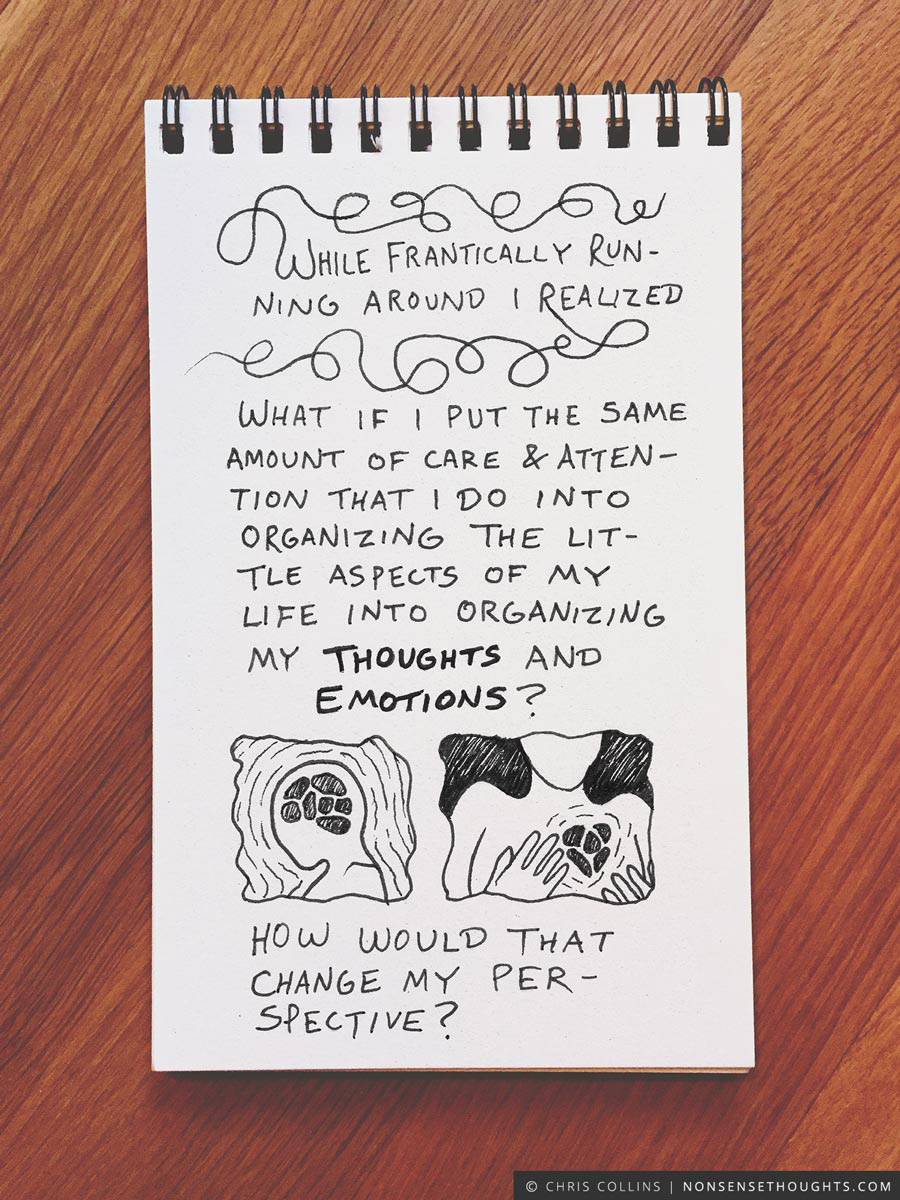 WHILE FRANTICALLY RUN-
NING AROUND I REALIZED
WHAT IF I PUT THE SAME
AMOUNT OF CARE & ATTEN-
TION THAT I DO INTO
ORGANIZING THE LIT-
TLE ASPECTS OF MY
LIFE INTO ORGANIZING
MY THOUGHTS AND
EMOTIONS?
HOW WOULD THAT
CHANGE MY PER-
SPECTIVE?
© CHRIS COLLINS | NONSENSETHOUGHTS.COM